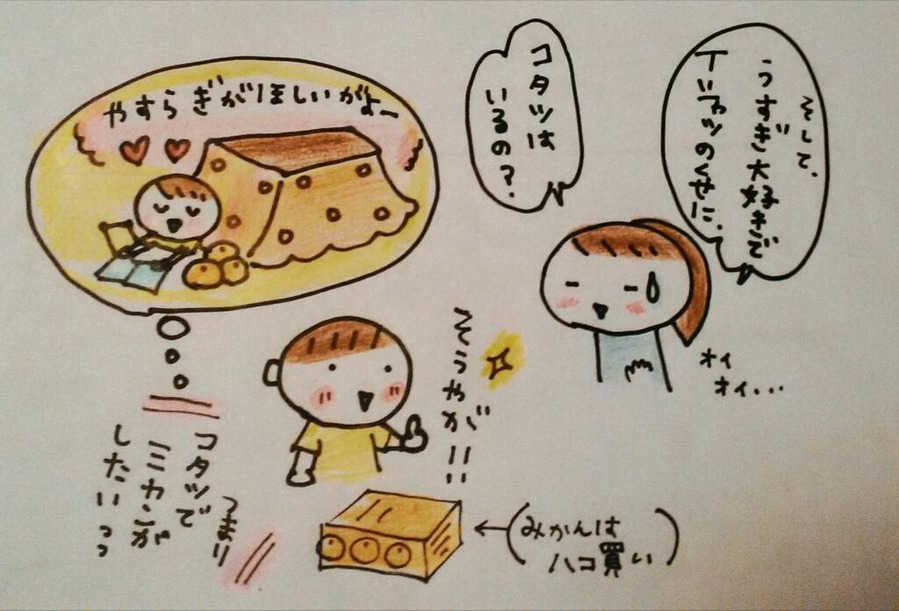 そして、
うすぎ大好きで
Tシャツのくせに、
コタツは
いるの?
オイ
オイ...
やすらぎがほしいがよー
そうやが!!
つまり
コタツで
ミカンが
したいっっ
(みかんは
ハコ買い)